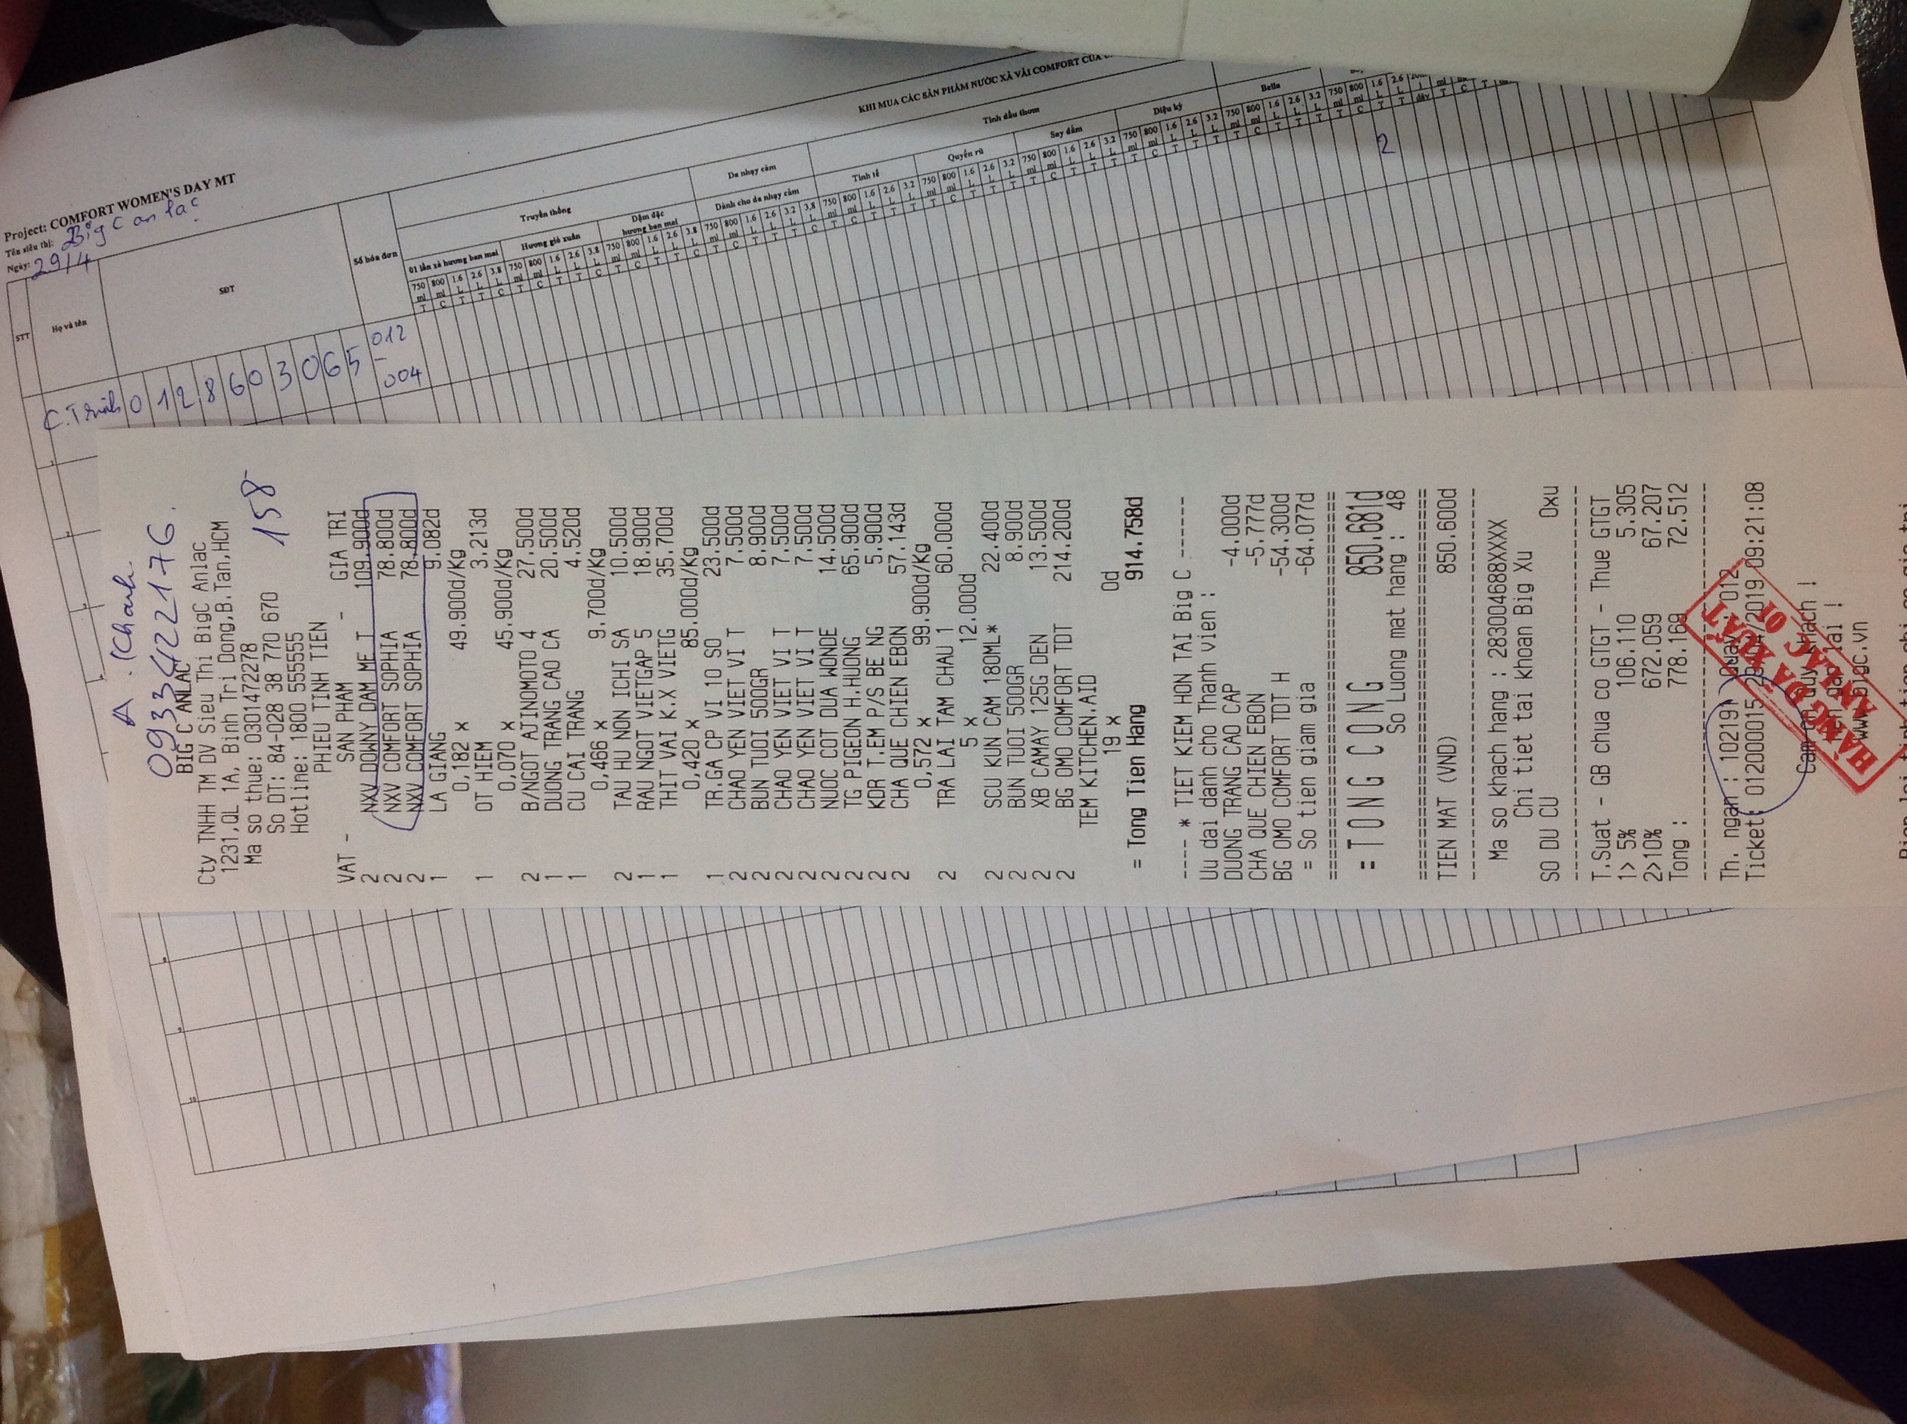 Project: COMFORT WOMEN'S DAY MT
Tên siêu thị: Big C an lạc
Ngày: 29/4
KHI MUA CÁC SẢN PHẨM NƯỚC XẢ VẢI COMFORT CỦA
STT
Họ và tên
SĐT
Số hóa đơn
Truyền thống
Da nhạy cảm
Tinh dầu thơm
01 lần xả hương ban mai
Hương gió xuân
Đậm đặc hương ban mai
Dành cho da nhạy cảm
Tinh tế
Quyến rũ
Say đắm
Diệu kỳ
Bella
C.Trinh 0128603065 012 - 004
2
A. Khanh
0934122176.
BIG C ANLAC
Cty TNHH TM DV Sieu Thi BigC Anlac
1231,QL 1A, Binh Tri Dong,B.Tan,HCM
Ma so thue: 0301472278
So DT: 84-028 38 770 670
158
Hotline: 1800 555555
PHIEU TINH TIEN
VAT - SAN PHAM - GIA TRI
2 NXV DOWNY DAM ME T 109.900d
2 NXV COMFORT SOPHIA 78.800d
2 NXV COMFORT SOPHIA 78.800d
1 LA GIANG 9.082d
0,182 x 49.900d/Kg
1 OT HIEM 3.213d
0,070 x 45.900d/Kg
2 B/NGOT AJINOMOTO 4 27.500d
1 DUONG TRANG CAO CA 20.500d
1 CU CAI TRANG 4.520d
0,466 x 9.700d/Kg
2 TAU HU NON ICHI SA 10.500d
1 RAU NGOT VIETGAP 5 18.900d
1 THIT VAI K.X VIETG 35.700d
0,420 x 85.000d/Kg
1 TR.GA CP VI 10 SO 23.500d
2 CHAO YEN VIET VI T 7.500d
2 BUN TUOI 500GR 8.900d
2 CHAO YEN VIET VI T 7.500d
2 CHAO YEN VIET VI T 7.500d
2 NUOC COT DUA WONDE 14.500d
2 TG PIGEON H.HUONG 65.900d
2 KDR T.EM P/S BE NG 5.900d
2 CHA QUE CHIEN EBON 57.143d
0,572 x 99.900d/Kg
2 TRA LAI TAM CHAU 1 60.000d
5 x 12.000d
2 SCU KUN CAM 180ML* 22.400d
2 BUN TUOI 500GR 8.900d
2 XB CAMAY 125G DEN 13.500d
2 BG OMO COMFORT TDT 214.200d
TEM KITCHEN.AID
19 x 0d
= Tong Tien Hang 914.758d
---- * TIET KIEM HON TAI Big C -------
Uu dai danh cho Thanh vien :
DUONG TRANG CAO CAP -4.000d
CHA QUE CHIEN EBON -5.777d
BG OMO COMFORT TDT H -54.300d
= So tien giam gia -64.077d
=TONG CONG 850.681d
So Luong mat hang : 48
TIEN MAT (VND) 850.600d
Ma so khach hang : 283004688XXXX
Chi tiet tai khoan Big Xu
SO DU CU 0xu
T.Suat - GB chua co GTGT - Thue GTGT
1> 5% 106.110 5.305
2>10% 672.059 67.207
Tong : 778.169 72.512
Th. ngan : 10219 Quay : 012
Ticket: 01200015 29/04/2019 09:21:08
HÀNG ĐÃ XUẤT
ANLAC 01
Cam on quy khach !
Hen gap lai !
www.bigc.vn